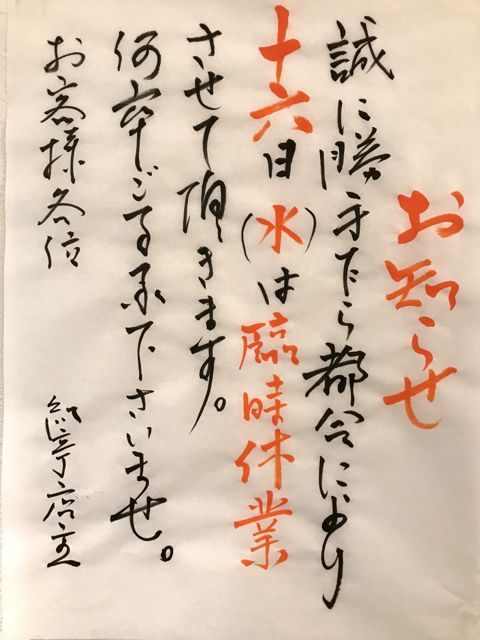 お知らせ
誠に勝手乍ら都合により
十六日(水)は臨時休業
させて頂きます。
何卒ご了承下さいませ。
お客様各位
亭店主